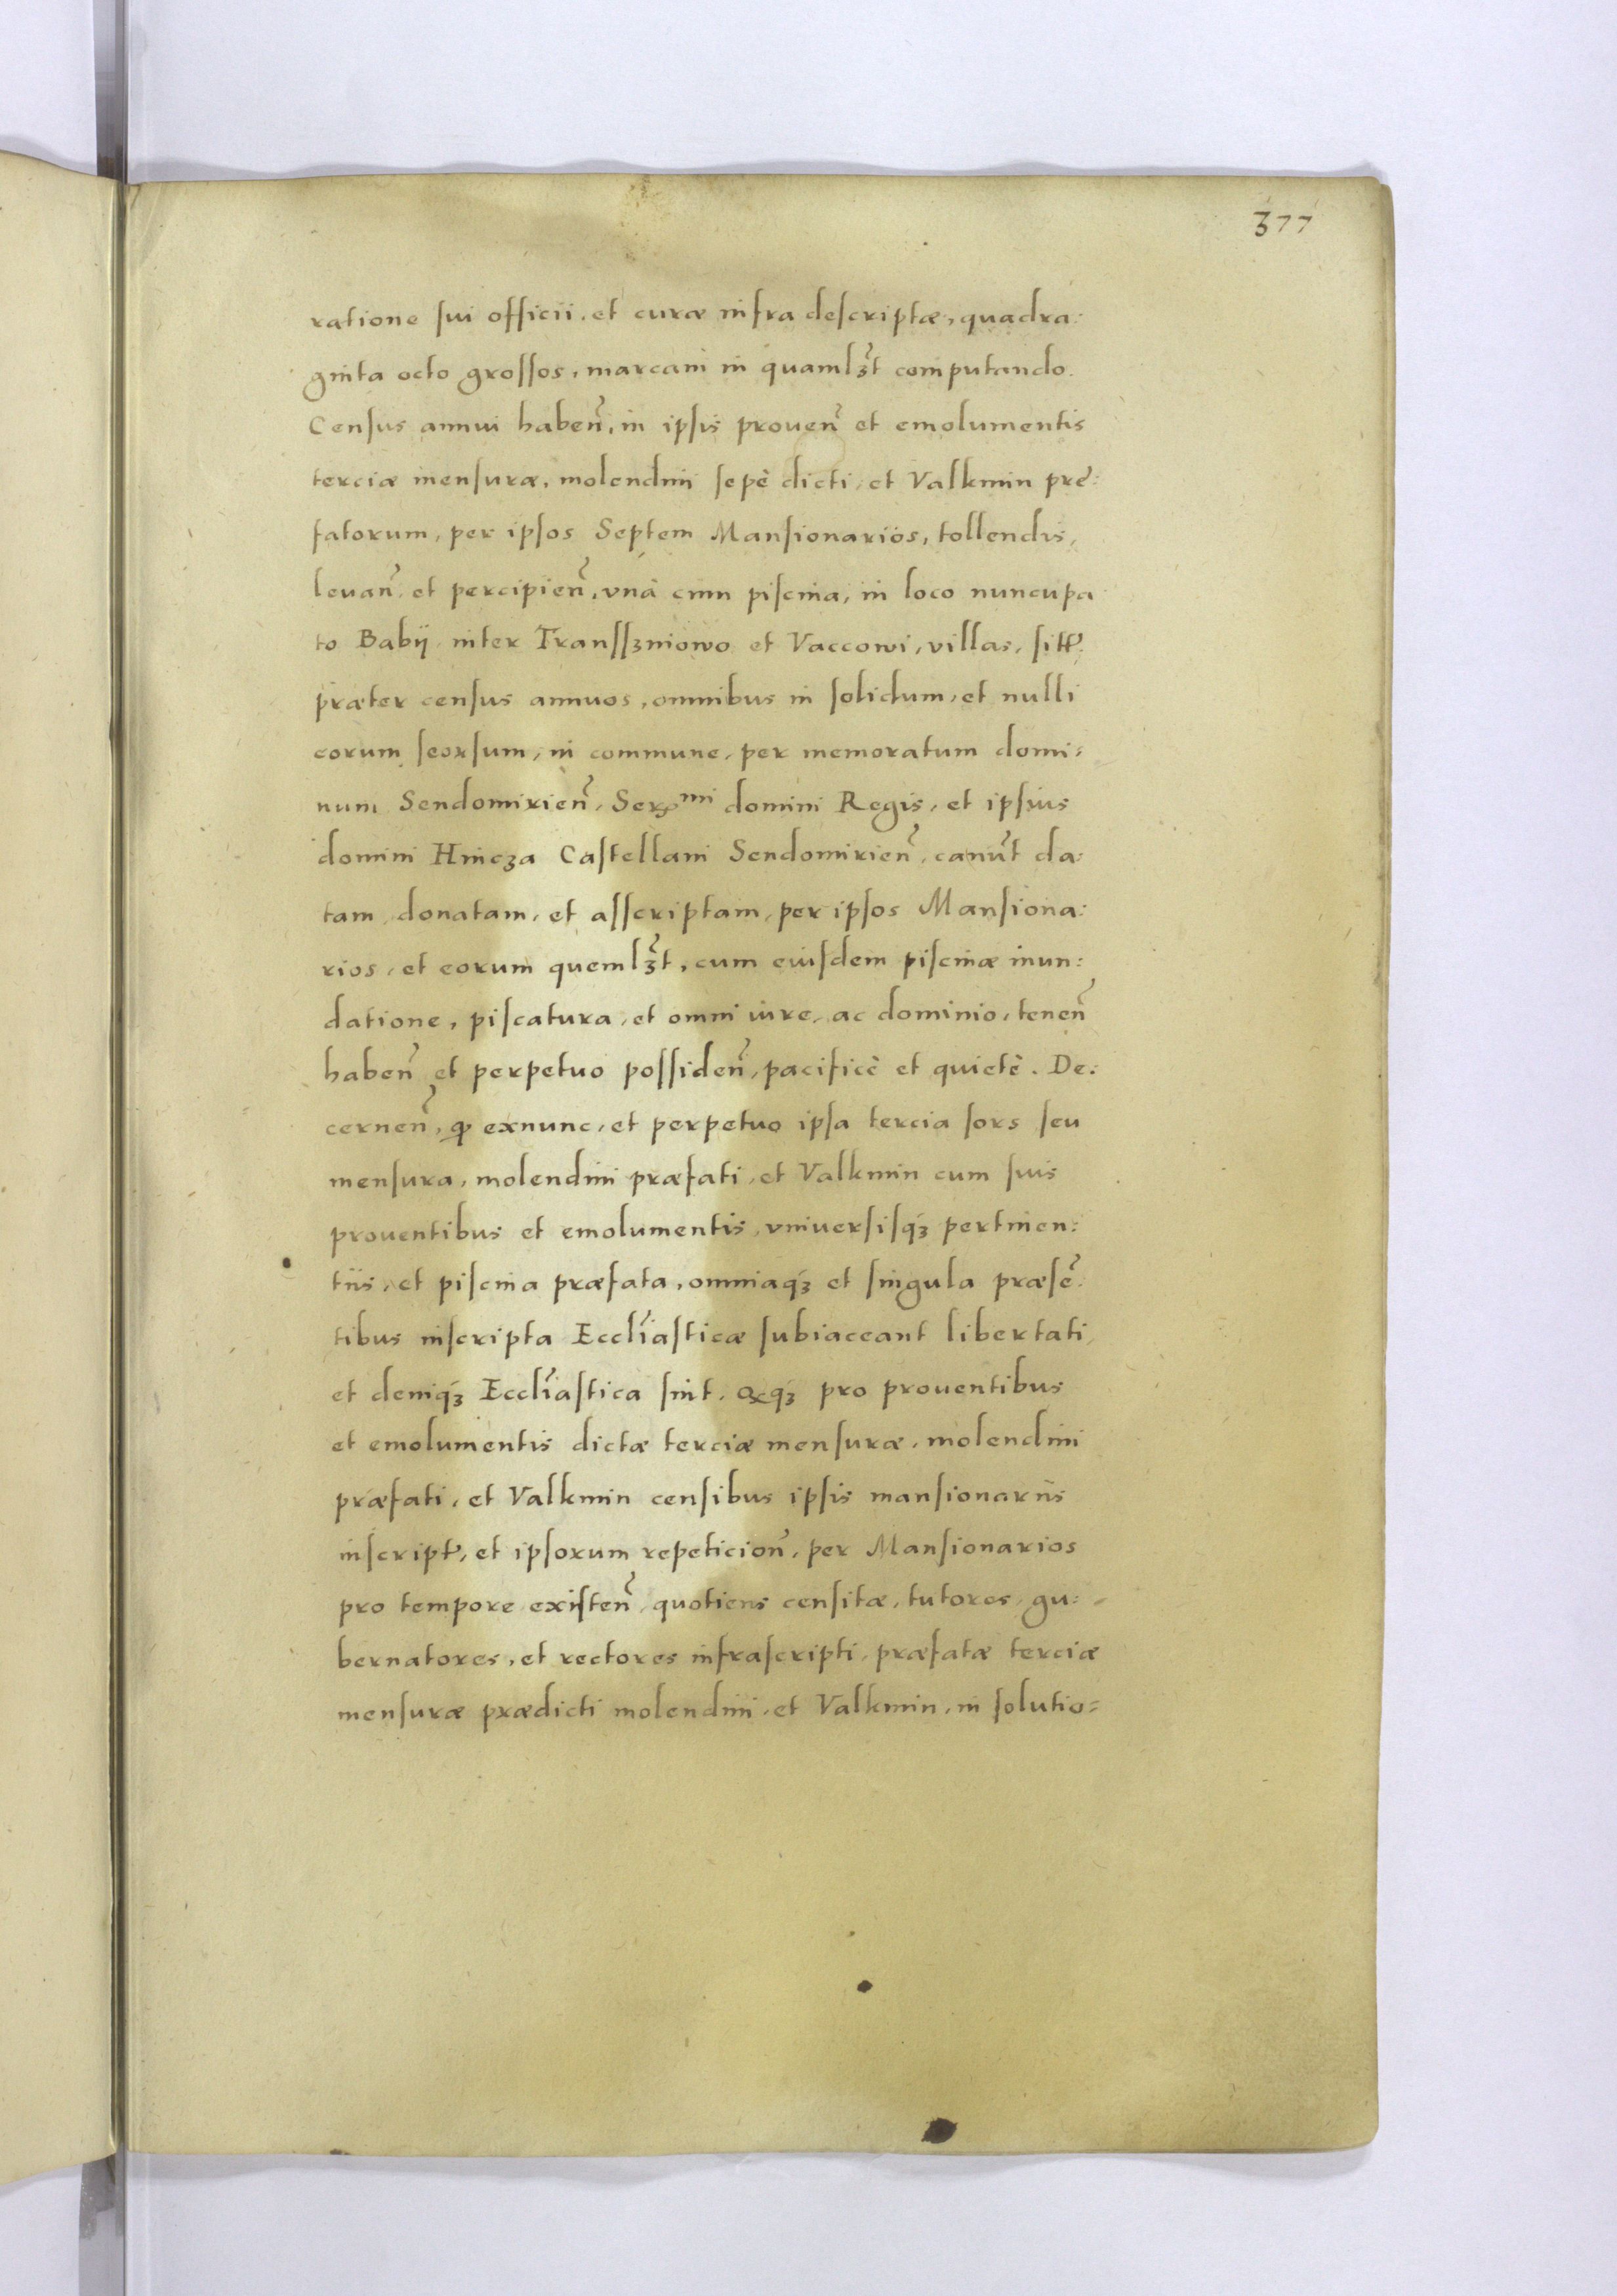 377
ratione sui officii, et curæ infra descriptæ, quadra:
ginta octo grossos, marcam in quamlꝫt computando.
Census annui haben̄, in ipsis prouen̄ et emolumentis
terciæ mensuræ, molendini sepè dicti, et Valkmin præ:
fatorum, per ipsos Septem Mansionarios, tollendis,
leuan̄ et percipien̄, vnà cum piscina, in loco nuncupa
to Babij inter Transszniowo et Vaccowi, villas, sitt.
præter census annuos, omnibus in solidum, et nulli
eorum seorsum, in commune, per memoratum domi:
num Sendomirien̄, Ser mi domini Regis, et ipsius
domini Hincza Castellani Sendomirien̄, canūt da:
tam, donatam, et asscriptam, per ipsos Mansiona:
rios, et eorum quemlꝫt, cum eiusdem piscinæ inun:
datione, piscatura, et omni iure, ac dominio, tenen̄
haben̄ et perpetuo possiden̄, pacificè et quietè. De:
cernen̄, ꝙ exnunc, et perpetuo ipsa tercia sors seu
mensura, molendini præfati, et Valkmin cum suis
prouentibus et emolumentis, vniuersisqꝫ pertinen:
tiis, et piscina præfata, omniaqꝫ et singula præsē:
tibus inscripta Eccl̄iasticæ subiaceant libertati,
et deniqꝫ Eccl̄iastica sint. Qqꝫ pro prouentibus
et emolumentis dictæ terciæ mensuræ, molendini
præfati, et Valkmin censibus ipsis mansionariis
inscript, et ipsorum repeticion̄, per Mansionarios
pro tempore existen̄, quotiens censitæ, tutores, gu:
bernatores, et rectores infrascripti, præfatæ terciæ
mensuræ prædicti molendini, et Valkmin, in solutio=